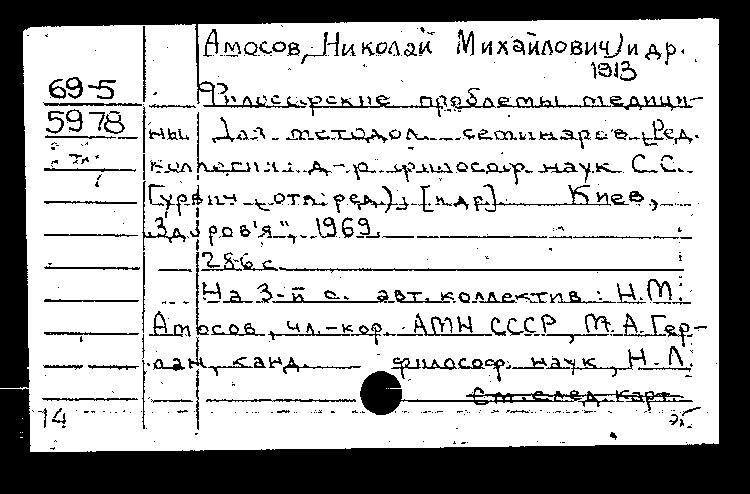 Амосов, Николай Михайлович, и др.
1913
69-5
Философские проблемы медици-
5978
ны. Для методол. семинаров. [Ред.
коллегия: д-р философ. наук С.С.
Гурвич (отв. ред.), [и др.]. Киев,
"Здоров'я", 1969.
286 с.
На 3-й с. авт. коллектив: Н.М.
Амосов, чл.-кор. АМН СССР, М.А. Гер-
ман, канд. философ. наук, Н.Л.
См. след. карт.
14